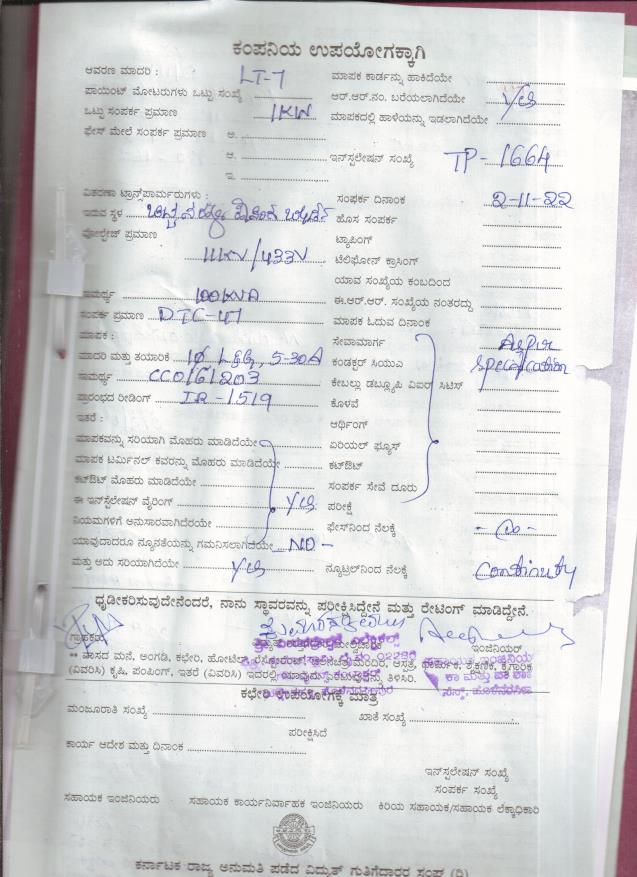 ಕಂಪನಿಯ ಉಪಯೋಗಕ್ಕಾಗಿ
ಆವರಣ ಮಾದರಿ : LT-7 ಮಾಪಕ ಕಾರ್ಡನ್ನು ಹಾಕಿದೆಯೇ
ಪಾಯಿಂಟ್ ಮೋಟರುಗಳು ಒಟ್ಟು ಸಂಖ್ಯೆ ಆರ್.ಆರ್.ನಂ. ಬರೆಯಲಾಗಿದೆಯೇ yes
ಒಟ್ಟು ಸಂಪರ್ಕ ಪ್ರಮಾಣ 1KW ಮಾಪಕದಲ್ಲಿ ಹಾಳೆಯನ್ನು ಇಡಲಾಗಿದೆಯೇ
ಫೇಸ್ ಮೇಲೆ ಸಂಪರ್ಕ ಪ್ರಮಾಣ ಅ.
ಆ. ಇನ್‌ಸ್ಟಲೇಷನ್ ಸಂಖ್ಯೆ TP-1664
ಇ.
ವಿತರಣಾ ಟ್ರಾನ್ಸ್‌ಫಾರ್ಮರುಗಳು : ಸಂಪರ್ಕ ದಿನಾಂಕ 2-11-22
ಇರುವ ಸ್ಥಳ ಹೊಸ ಸಂಪರ್ಕ
ವೋಲ್ಟೇಜ್ ಪ್ರಮಾಣ ಟ್ಯಾಪಿಂಗ್
11KV/433V ಟೆಲಿಫೋನ್ ಕ್ರಾಸಿಂಗ್
ಯಾವ ಸಂಖ್ಯೆಯ ಕಂಬದಿಂದ
ಸಾಮರ್ಥ್ಯ 100KVA ಈ.ಆರ್.ಆರ್. ಸಂಖ್ಯೆಯ ನಂತರದ್ದು
ಸಂಪರ್ಕ ಪ್ರಮಾಣ DTC-47 ಮಾಪಕ ಓದುವ ದಿನಾಂಕ
ಮಾಪಕ : ಸೇವಾಮಾರ್ಗ As Per
ಮಾದರಿ ಮತ್ತು ತಯಾರಿಕೆ 5-30A ಕಂಡಕ್ಟರ್ ಸಿಯುಎ Specification
ಸಾಮರ್ಥ್ಯ CC0161203 ಕೇಬಲ್ಲು ಡಬ್ಲ್ಯೂಪಿ ವಿಐಆರ್ ಸಿಟಿಎಸ್
ಪ್ರಾರಂಭದ ರೀಡಿಂಗ್ IR-1519 ಕೊಳವೆ
ಇತರೆ : ಆರ್ಥಿಂಗ್
ಮಾಪಕವನ್ನು ಸರಿಯಾಗಿ ಮೊಹರು ಮಾಡಿದೆಯೇ ಏರಿಯಲ್ ಫ್ಯೂಸ್
ಮಾಪಕ ಟರ್ಮಿನಲ್ ಕವರನ್ನು ಮೊಹರು ಮಾಡಿದೆಯೇ ಕಟ್‌ಔಟ್
ಕಟ್‌ಔಟ್ ಮೊಹರು ಮಾಡಿದೆಯೇ ಸಂಪರ್ಕ ಸೇವೆ ದೂರು
ಈ ಇನ್‌ಸ್ಟಲೇಷನ್ ವೈರಿಂಗ್ yes ಪರೀಕ್ಷೆ
ನಿಯಮಗಳಿಗೆ ಅನುಸಾರವಾಗಿದೆರಯೇ ಫೇಸ್‌ನಿಂದ ನೆಲಕ್ಕೆ
ಯಾವುದಾದರೂ ನ್ಯೂನತೆಯನ್ನು ಗಮನಿಸಲಾಗಿದೆಯೇ NO -
ಮತ್ತು ಅದು ಸರಿಯಾಗಿದೆಯೇ yes ನ್ಯೂಟ್ರಲ್‌ನಿಂದ ನೆಲಕ್ಕೆ Continuty
ಧೃಡೀಕರಿಸುವುದೇನೆಂದರೆ, ನಾನು ಸ್ಥಾವರವನ್ನು ಪರೀಕ್ಷಿಸಿದ್ದೇನೆ ಮತ್ತು ರೇಟಿಂಗ್ ಮಾಡಿದ್ದೇನೆ.
ಗ್ರಾಹಕರು ಇಂಜಿನಿಯರ್
** ವಾಸದ ಮನೆ, ಅಂಗಡಿ, ಕಛೇರಿ, ಹೋಟೆಲ್
(ವಿವರಿಸಿ) ಕೃಷಿ, ಪಂಪಿಂಗ್, ಇತರೆ (ವಿವರಿಸಿ) ಇದರಲ್ಲಿ ತಿಳಿಸಿರಿ.
ಕಛೇರಿ ಉಪಯೋಗಕ್ಕೆ ಮಾತ್ರ
ಮಂಜೂರಾತಿ ಸಂಖ್ಯೆ ಖಾತೆ ಸಂಖ್ಯೆ
ಪರೀಕ್ಷಿಸಿದೆ
ಕಾರ್ಯ ಆದೇಶ ಮತ್ತು ದಿನಾಂಕ
ಇನ್‌ಸ್ಟಲೇಷನ್ ಸಂಖ್ಯೆ
ಸಂಪರ್ಕ ಸಂಖ್ಯೆ
ಸಹಾಯಕ ಇಂಜಿನಿಯರು ಸಹಾಯಕ ಕಾರ್ಯನಿರ್ವಾಹಕ ಇಂಜಿನಿಯರು ಕಿರಿಯ ಸಹಾಯಕ/ಸಹಾಯಕ ಲೆಕ್ಕಾಧಿಕಾರಿ
ಕರ್ನಾಟಕ ರಾಜ್ಯ ಅನುಮತಿ ಪಡೆದ ವಿದ್ಯುತ್ ಗುತಿಗೆದಾರರ ಸಂಘ (ರಿ)